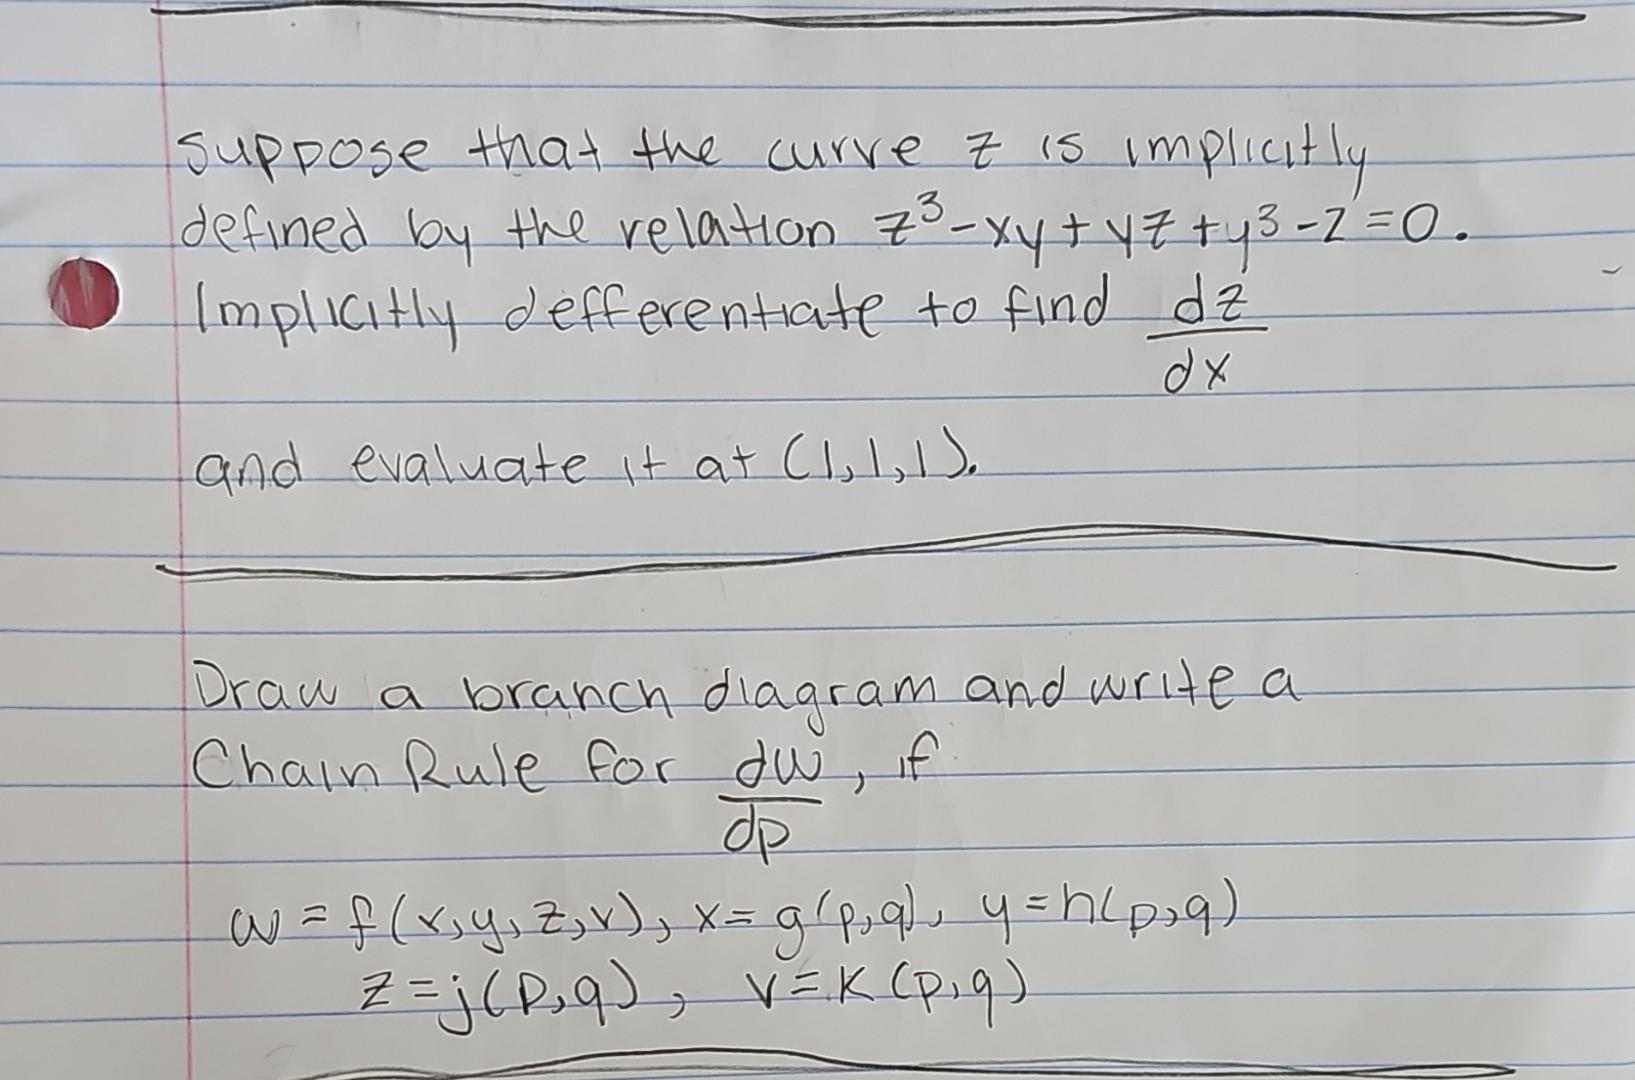 suppose that the curve z is implicitly
defined by the relation z³-xy+yz+y³-2=0.
Implicitly defferentiate to find dz
dx
and evaluate it at (1,1,1).
Draw a branch diagram and write a
Chain Rule for dw, if
dp
w = f(x,y,z,v), x=g(p,q), y=h(p,q)
z=j(p,q), v=k(p,q)